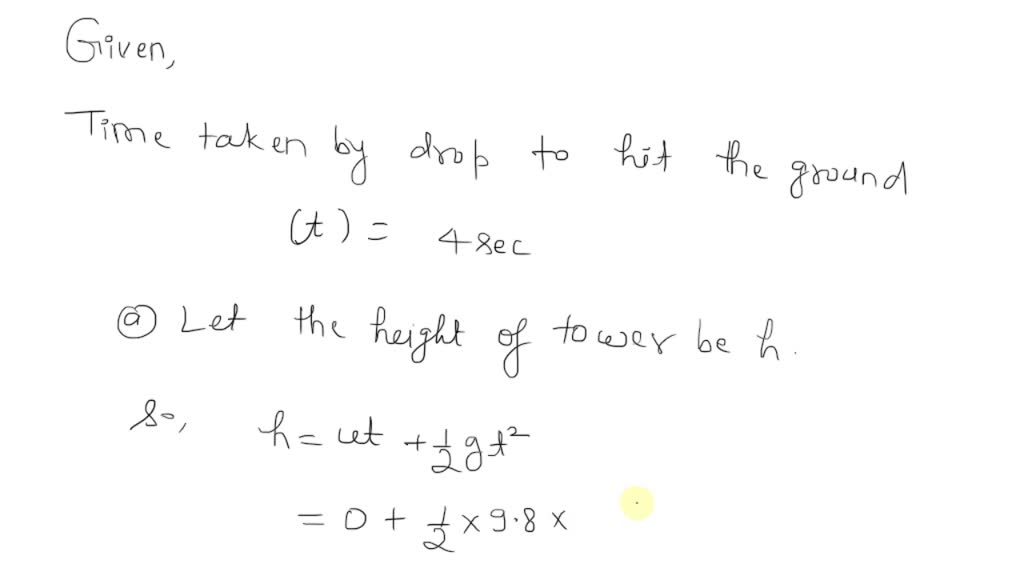 Given,
Time taken by drop to hit the ground
(t) = 4 sec
ⓐ Let the height of tower be h.
So, h = ut + 1/2 gt²
= 0 + 1/2 × 9.8 ×